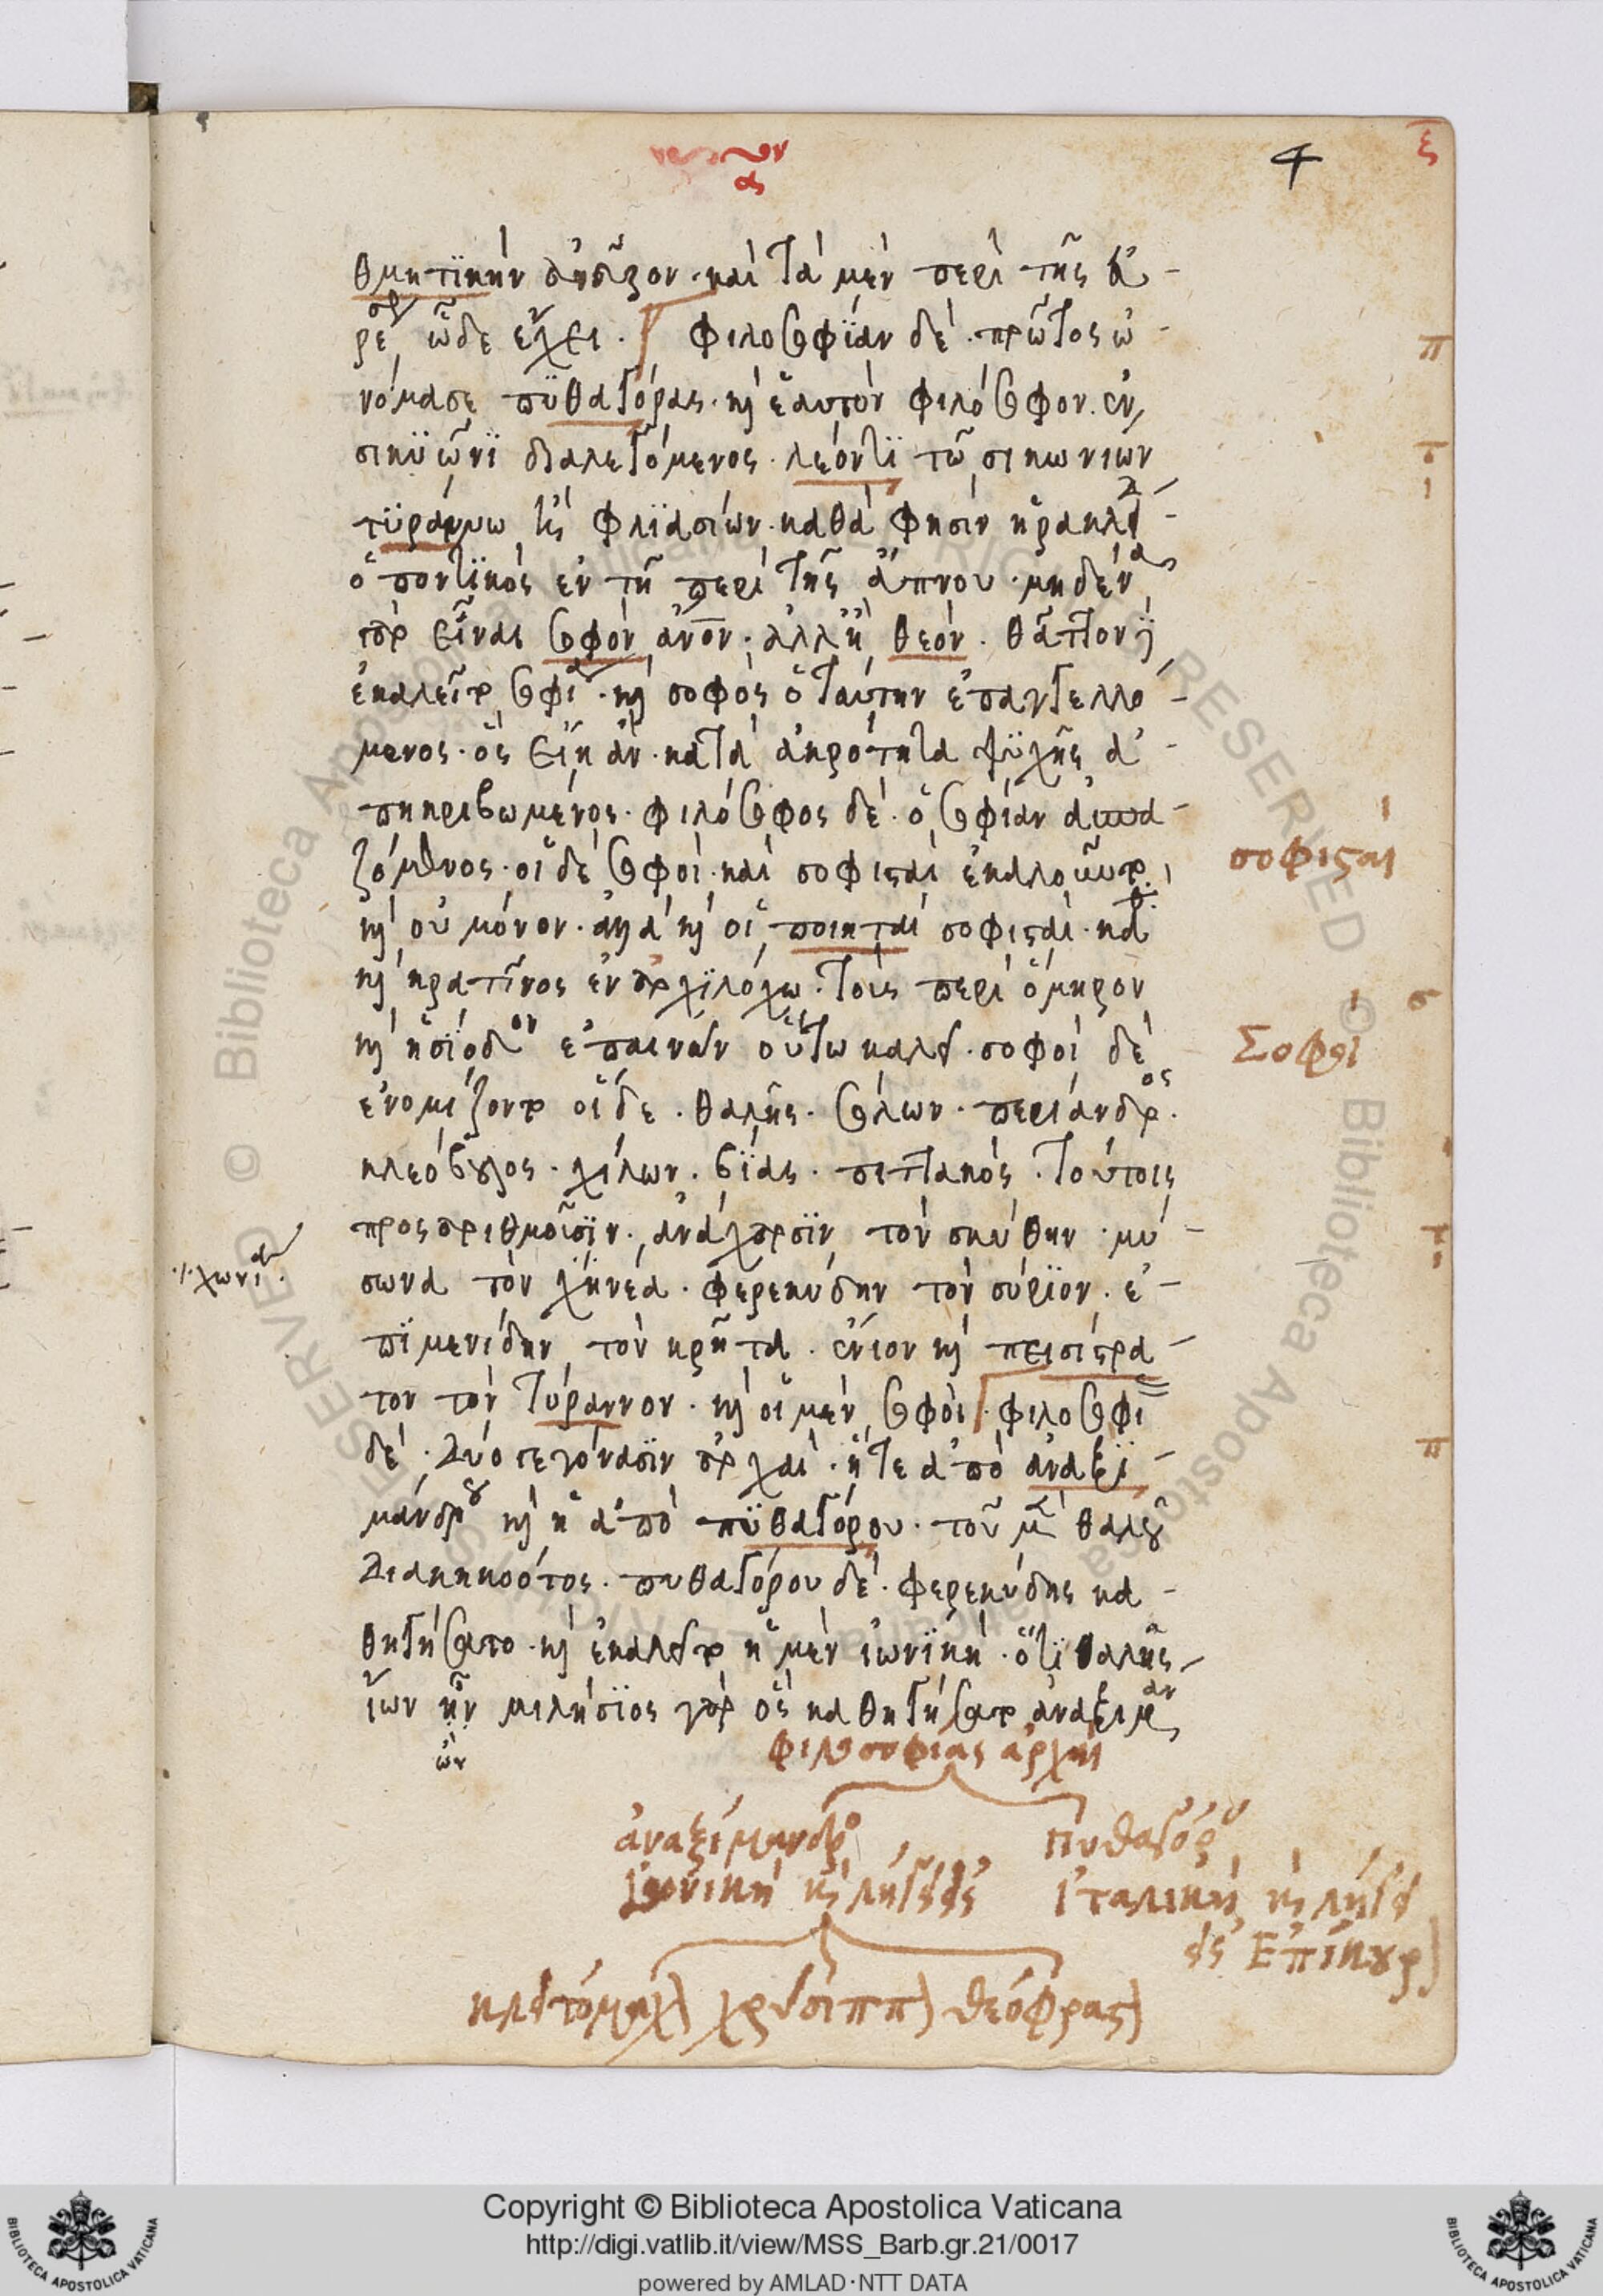 4
ξ
θμητικὴν ἤσκηζον· καὶ τὰ μὲν περὶ τῆς εὑ-
ρέσεως ὧδε ἔχει. φιλοσοφΐαν δὲ πρῶτος ὠ-
νόμασε πυθαγόρας· καὶ ἑαυτὸν φιλόσοφον. ἐν
σικυῶνι διαλεγόμενος λέοντι τῶ σικωνιών
τυράννω ἢ φλιασίων· καθά φησιν ἡρακλεί-
ὁ ποντικὸς ἐν τῆ περὶ τῆς ἄπνου· μηδένα
γὰρ εἶναι σοφὸν ἄνον· ἀλλ' ἢ θεόν. θᾶττον
ἐκαλεῖτο σοφία· καὶ σοφὸς ὁ ταύτην ἐπαγγελλό-
μενος· ὃς εἴη ἂν κατὰ ἀκρότητα ψυχῆς ἀ-
πηκριβωμένος· φιλόσοφος δὲ ὁ σοφίαν ἀσπα-
ζόμενος· οἱ δὲ σοφοὶ καὶ σοφισταὶ ἐκαλοῦντο·
καὶ οὐ μόνον· ἀλλὰ καὶ οἱ ποιηταὶ σοφισταί· καθὰ
καὶ κρατῖνος ἐν ἀρχιλόχω· τοὺς περὶ ὅμηρον
καὶ ἡσίοδον ἐπαινῶν οὕτω καλεῖ· σοφοὶ δὲ
ἐνομίζοντο οἵδε· θαλῆς· σόλων· περίανδρος·
κλεόβουλος· χίλων· βίας· πιττακός· τούτοις
προσαριθμοῦσιν· ἀνάχαρσιν τὸν σκύθην· μύ-
σωνα τὸν χηνέα· φερεκύδην τὸν σύριον· ἐ-
πιμενίδην τὸν κρῆτα· ἔνιοι καὶ πεισίστρα-
τον τὸν τύραννον· καὶ οἱ μὲν σοφοί· φιλοσοφί
δὲ δύο γεγόνασιν ἀρχαί· ἥ τε ἀπὸ ἀναξι-
μάνδρου καὶ ἡ ἀπὸ πυθαγόρου· τοῦ μὲν θαλοῦ
διακηκοότος· πυθαγόρου δὲ φερεκύδης κα-
θηγήσατο· καὶ ἐκαλεῖτο ἡ μὲν ἰωνικὴ· ὅτι θαλῆς
ἴων ἦν μιλήσιος γὰρ ὃς καθηγήσατο ἀναξιμάν
ὢν
σοφισταὶ
Σοφοὶ
φιλοσοφίας ἀρχαὶ
ἀναξίμανδρο
πυθαγόρου
ἰωνικὴ καὶ λήγει εἰς
ἰταλικὴ καὶ λήγει
εἰς Ἐπίκουρ
κλειτόμαχ χρύσιππ θεόφραστ
Copyright © Biblioteca Apostolica Vaticana
http://digi.vatlib.it/view/MSS_Barb.gr.21/0017
powered by AMLAD·NTT DATA
BIBLIOTECA APOSTOLICA VATICANA
BIBLIOTECA APOSTOLICA VATICANA